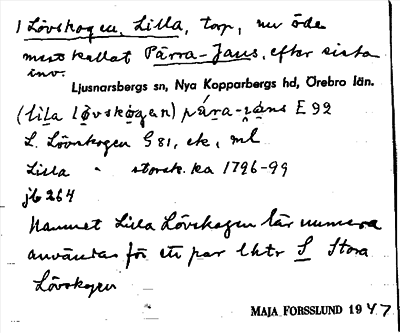 1 Lövskogen, Lilla, torp, nu öde
mest kallat Pärra-Jans, efter sista
inv.
Ljusnarsbergs sn, Nya Kopparbergs hd, Örebro län.
(lila lövskogan) pára-jans E 92
L. Lövskogen G 81, ek, ml
Lilla " storsk. ka 1796-99
jb 264
Namnet Lilla Lövskogen lär numera
användas för ett par lhtr S Stora
Lövskogen
MAJA FORSSLUND 1947